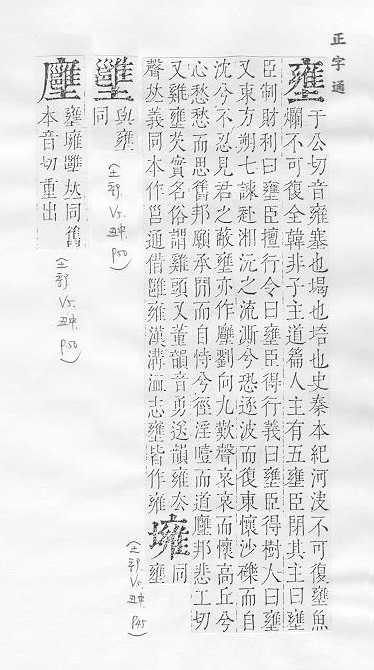 正字通
壅 于公切音雍塞也堨也培也史秦本紀河決不可復壅魚
爛不可復全韓非子主道篇人主有五壅臣閉其主曰壅
臣制財利曰壅臣擅行令曰壅臣得行義曰壅臣得樹人曰壅
又東方朔七諫赴湘沅之流澌兮恐逐波而復東懷沙礫而自
沈兮不忍見君之蔽壅亦作廱劉向九歎聲哀哀而懷高丘兮
心愁愁而思舊邦願承閒而自恃兮徑淫曀而道廱邦悲工切
又雞壅芡實名俗謂雞頭又董韻音勇送韻雍去
聲𠀤義同本作邕通借雝雍漢溝洫志壅皆作雍
同
壅
(土部 V5. 丑集 P45)
與壅
同
(土部 V5. 丑集 P50)
壅 𠀤同舊
本音切重出
(土部 V5. 丑集 P50)